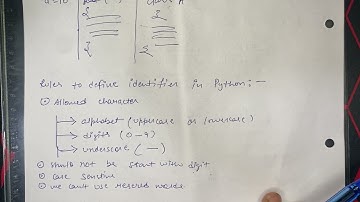 a=10
class A
Rules to define identifier in Python:-
① Allowed character
→ alphabet (uppercase or lowercase)
→ digits (0-9)
→ underscore (_)
② should not be start with digit
③ case sensitive
④ we can't use reserved words